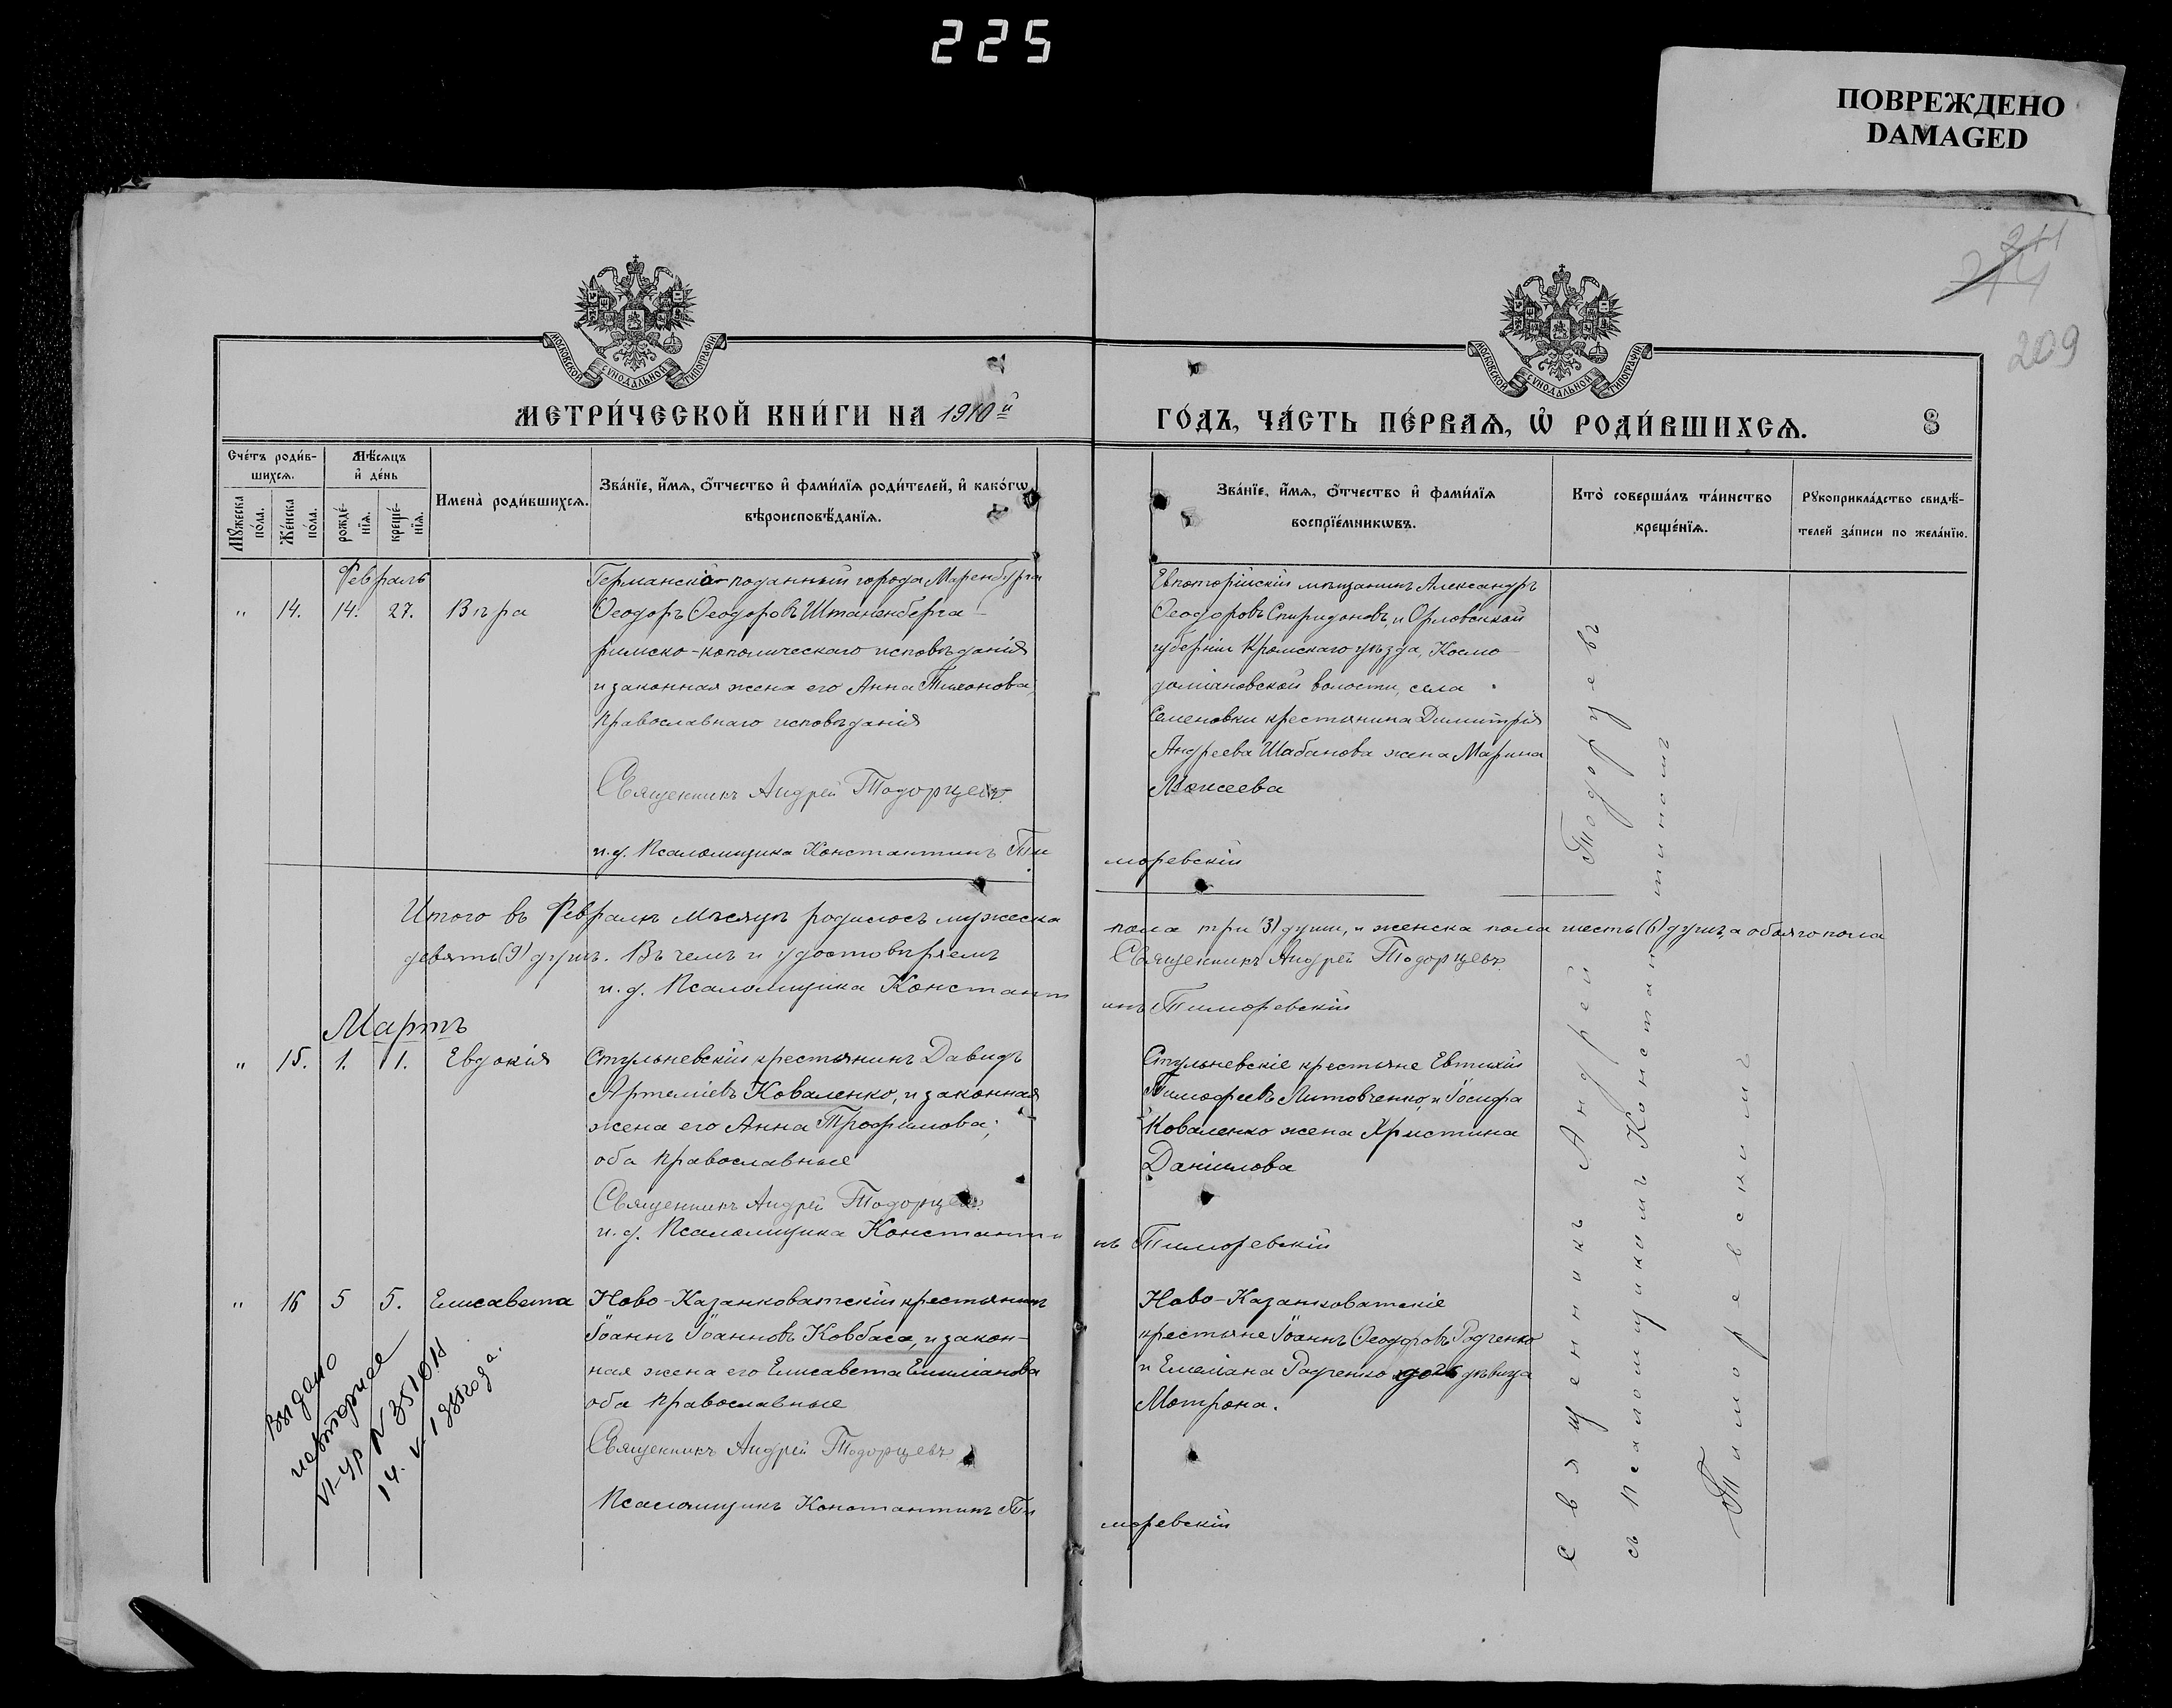 225
ПОВРЕЖДЕНО
DAMAGED
211
209
МОСКОВСКОЙ СѴНОДАЛЬНОЙ ТИПОГРАФІИ
МОСКОВСКОЙ СѴНОДАЛЬНОЙ ТИПОГРАФІИ
МЕТРИ́ЧЕСКОЙ КНИ́ГИ НА 1910й
ГО́ДЪ, ЧА́СТЬ ПЕ́РВАѦ, Ѡ҆ РОДИ́ВШИХСѦ.
8
Сче́тъ роди́в-
шихсѧ.
Мѣ́сѧцъ
и҆ де́нь
Мꙋ́жеска
по́ла.
Же́нска
по́ла.
рожде́-
нїѧ.
креще́-
нїѧ.
Имена̀ роди́вшихсѧ.
Зва́нїе, и҆́мѧ, ѻ҆́тчество и҆ фами́лїѧ роди́телей, и҆ како́гѡ
вѣроисповѣ́данїѧ.
Зва́нїе, и҆́мѧ, ѻ҆́тчество и҆ фами́лїѧ
воспрїе́мникѡвъ.
Кто̀ соверша́лъ та́инство
креще́нїѧ.
Рꙋкоприкла́дство свидѣ́-
телей за́писи по жела́нїю.
Февраль
" 14. 14. 27. Вѣра
Германско-поданный города Маренбурга
Ѳеодоръ Ѳеодоровъ Штаненберга
римско-католическаго исповѣданія
и законная жена его Анна Тихонова,
православнаго исповѣданія
Священникъ Андрей Тодорцевъ
и.д. Псаломщика Константинъ Ти
моревскій
Евпаторійскій мѣщанинъ Александръ
Ѳеодоровъ Спиридоновъ, и Орловской
губерніи Кромскаго уѣзда, Космо-
даміановской волости, села
Семеновки крестьянина Димитрія
Андреева Шабанова жена Марина
Моисеева
Итого въ Февралѣ мѣсяцѣ родилось мужеска
пола три (3) души, и женска пола шесть (6) душъ, а обоего пола
девять (9) душъ. Въ чемъ и удостовѣряемъ
Священникъ Андрей Тодорцевъ
и.д. Псаломщика Констант
инъ Тиморевскій
Мартъ
" 15. 1. 1. Евдокія
Стульневскій крестьянинъ Давидъ
Артеміевъ Коваленко, и законная
жена его Анна Трофимова;
оба православные
Священникъ Андрей Тодорцевъ
и.д. Псаломщика Константи
нъ Тиморевскій
Стульневскіе крестьяне Евтихій
Тимофеевъ Литовченко, и Іосифа
Коваленко жена Христина
Даніилова
" 16 5 5. Елисавета
Ново-Казанковатскій крестьянинъ
Іоаннъ Іоанновъ Ковбаса, и закон-
ная жена его Елисавета Емиліанова
оба православные
Священникъ Андрей Тодорцевъ
Псаломщикъ Константинъ Ти
моревскій
Ново-Казанковатскіе
крестьяне Іоаннъ Ѳеодоровъ Радченко
и Емеліана Радченко дочь дѣвица
Мотрона.
Выдано
повторное
VI-УР N 351018
14. V. 1985 года.
Священникъ Андрей Тодорцевъ
съ псаломщикомъ Константиномъ
Тиморевскимъ